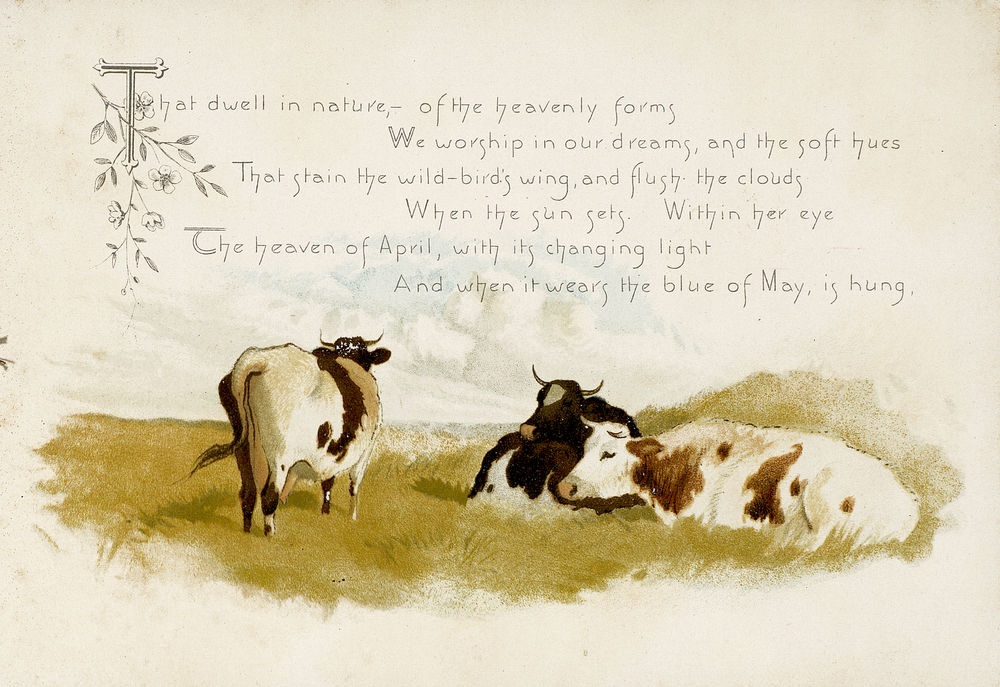 That dwell in nature,– of the heavenly forms
We worship in our dreams, and the soft hues
That stain the wild-bird's wing, and flush the clouds
When the sun sets. Within her eye
The heaven of April, with its changing light
And when it wears the blue of May, is hung,